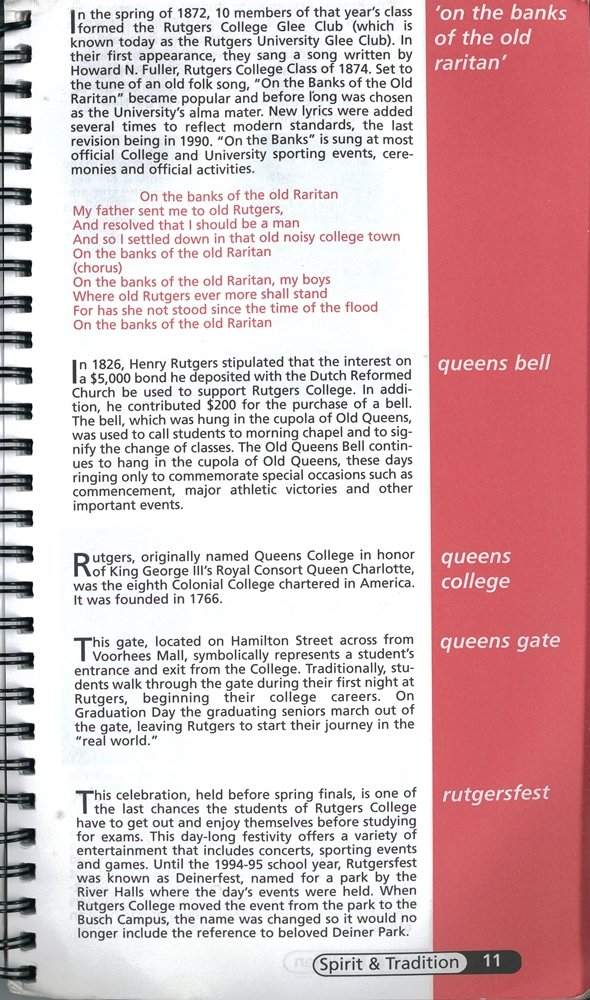 In the spring of 1872, 10 members of that year's class
formed the Rutgers College Glee Club (which is
known today as the Rutgers University Glee Club). In
their first appearance, they sang a song written by
Howard N. Fuller, Rutgers College Class of 1874. Set to
the tune of an old folk song, "On the Banks of the Old
Raritan" became popular and before long was chosen
as the University's alma mater. New lyrics were added
several times to reflect modern standards, the last
revision being in 1990. "On the Banks" is sung at most
official College and University sporting events, cere-
monies and official activities.
'on the banks
of the old
raritan'
On the banks of the old Raritan
My father sent me to old Rutgers,
And resolved that I should be a man
And so I settled down in that old noisy college town
On the banks of the old Raritan
(chorus)
On the banks of the old Raritan, my boys
Where old Rutgers ever more shall stand
For has she not stood since the time of the flood
On the banks of the old Raritan
In 1826, Henry Rutgers stipulated that the interest on
a $5,000 bond he deposited with the Dutch Reformed
Church be used to support Rutgers College. In addi-
tion, he contributed $200 for the purchase of a bell.
The bell, which was hung in the cupola of Old Queens,
was used to call students to morning chapel and to sig-
nify the change of classes. The Old Queens Bell contin-
ues to hang in the cupola of Old Queens, these days
ringing only to commemorate special occasions such as
commencement, major athletic victories and other
important events.
queens bell
Rutgers, originally named Queens College in honor
of King George III's Royal Consort Queen Charlotte,
was the eighth Colonial College chartered in America.
It was founded in 1766.
queens
college
This gate, located on Hamilton Street across from
Voorhees Mall, symbolically represents a student's
entrance and exit from the College. Traditionally, stu-
dents walk through the gate during their first night at
Rutgers, beginning their college careers. On
Graduation Day the graduating seniors march out of
the gate, leaving Rutgers to start their journey in the
"real world."
queens gate
This celebration, held before spring finals, is one of
the last chances the students of Rutgers College
have to get out and enjoy themselves before studying
for exams. This day-long festivity offers a variety of
entertainment that includes concerts, sporting events
and games. Until the 1994-95 school year, Rutgersfest
was known as Deinerfest, named for a park by the
River Halls where the day's events were held. When
Rutgers College moved the event from the park to the
Busch Campus, the name was changed so it would no
longer include the reference to beloved Deiner Park.
rutgersfest
Spirit & Tradition 11